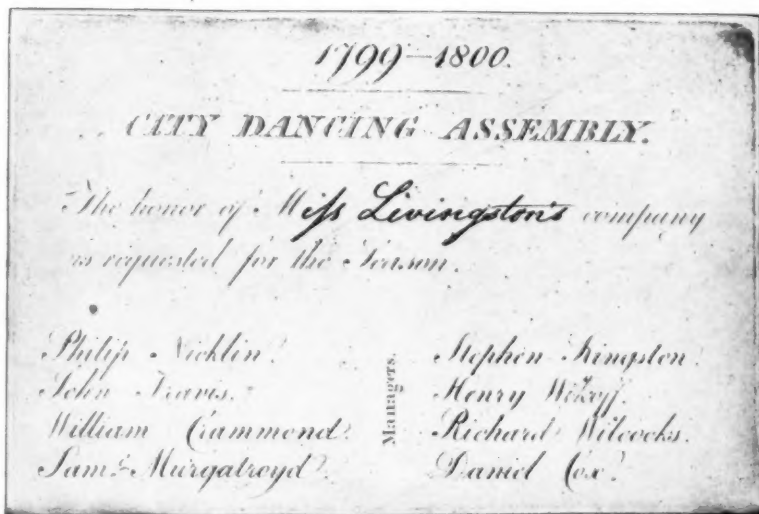 1799–1800.
CITY DANCING ASSEMBLY.
The honor of Miss Livingston's company
is requested for the Season.
Philip Nicklin.
John Travis.
William Crammond.
Saml. Murgatroyd.
Managers.
Stephen Kingston.
Henry Wikoff.
Richard Wilcocks.
Daniel Cox.